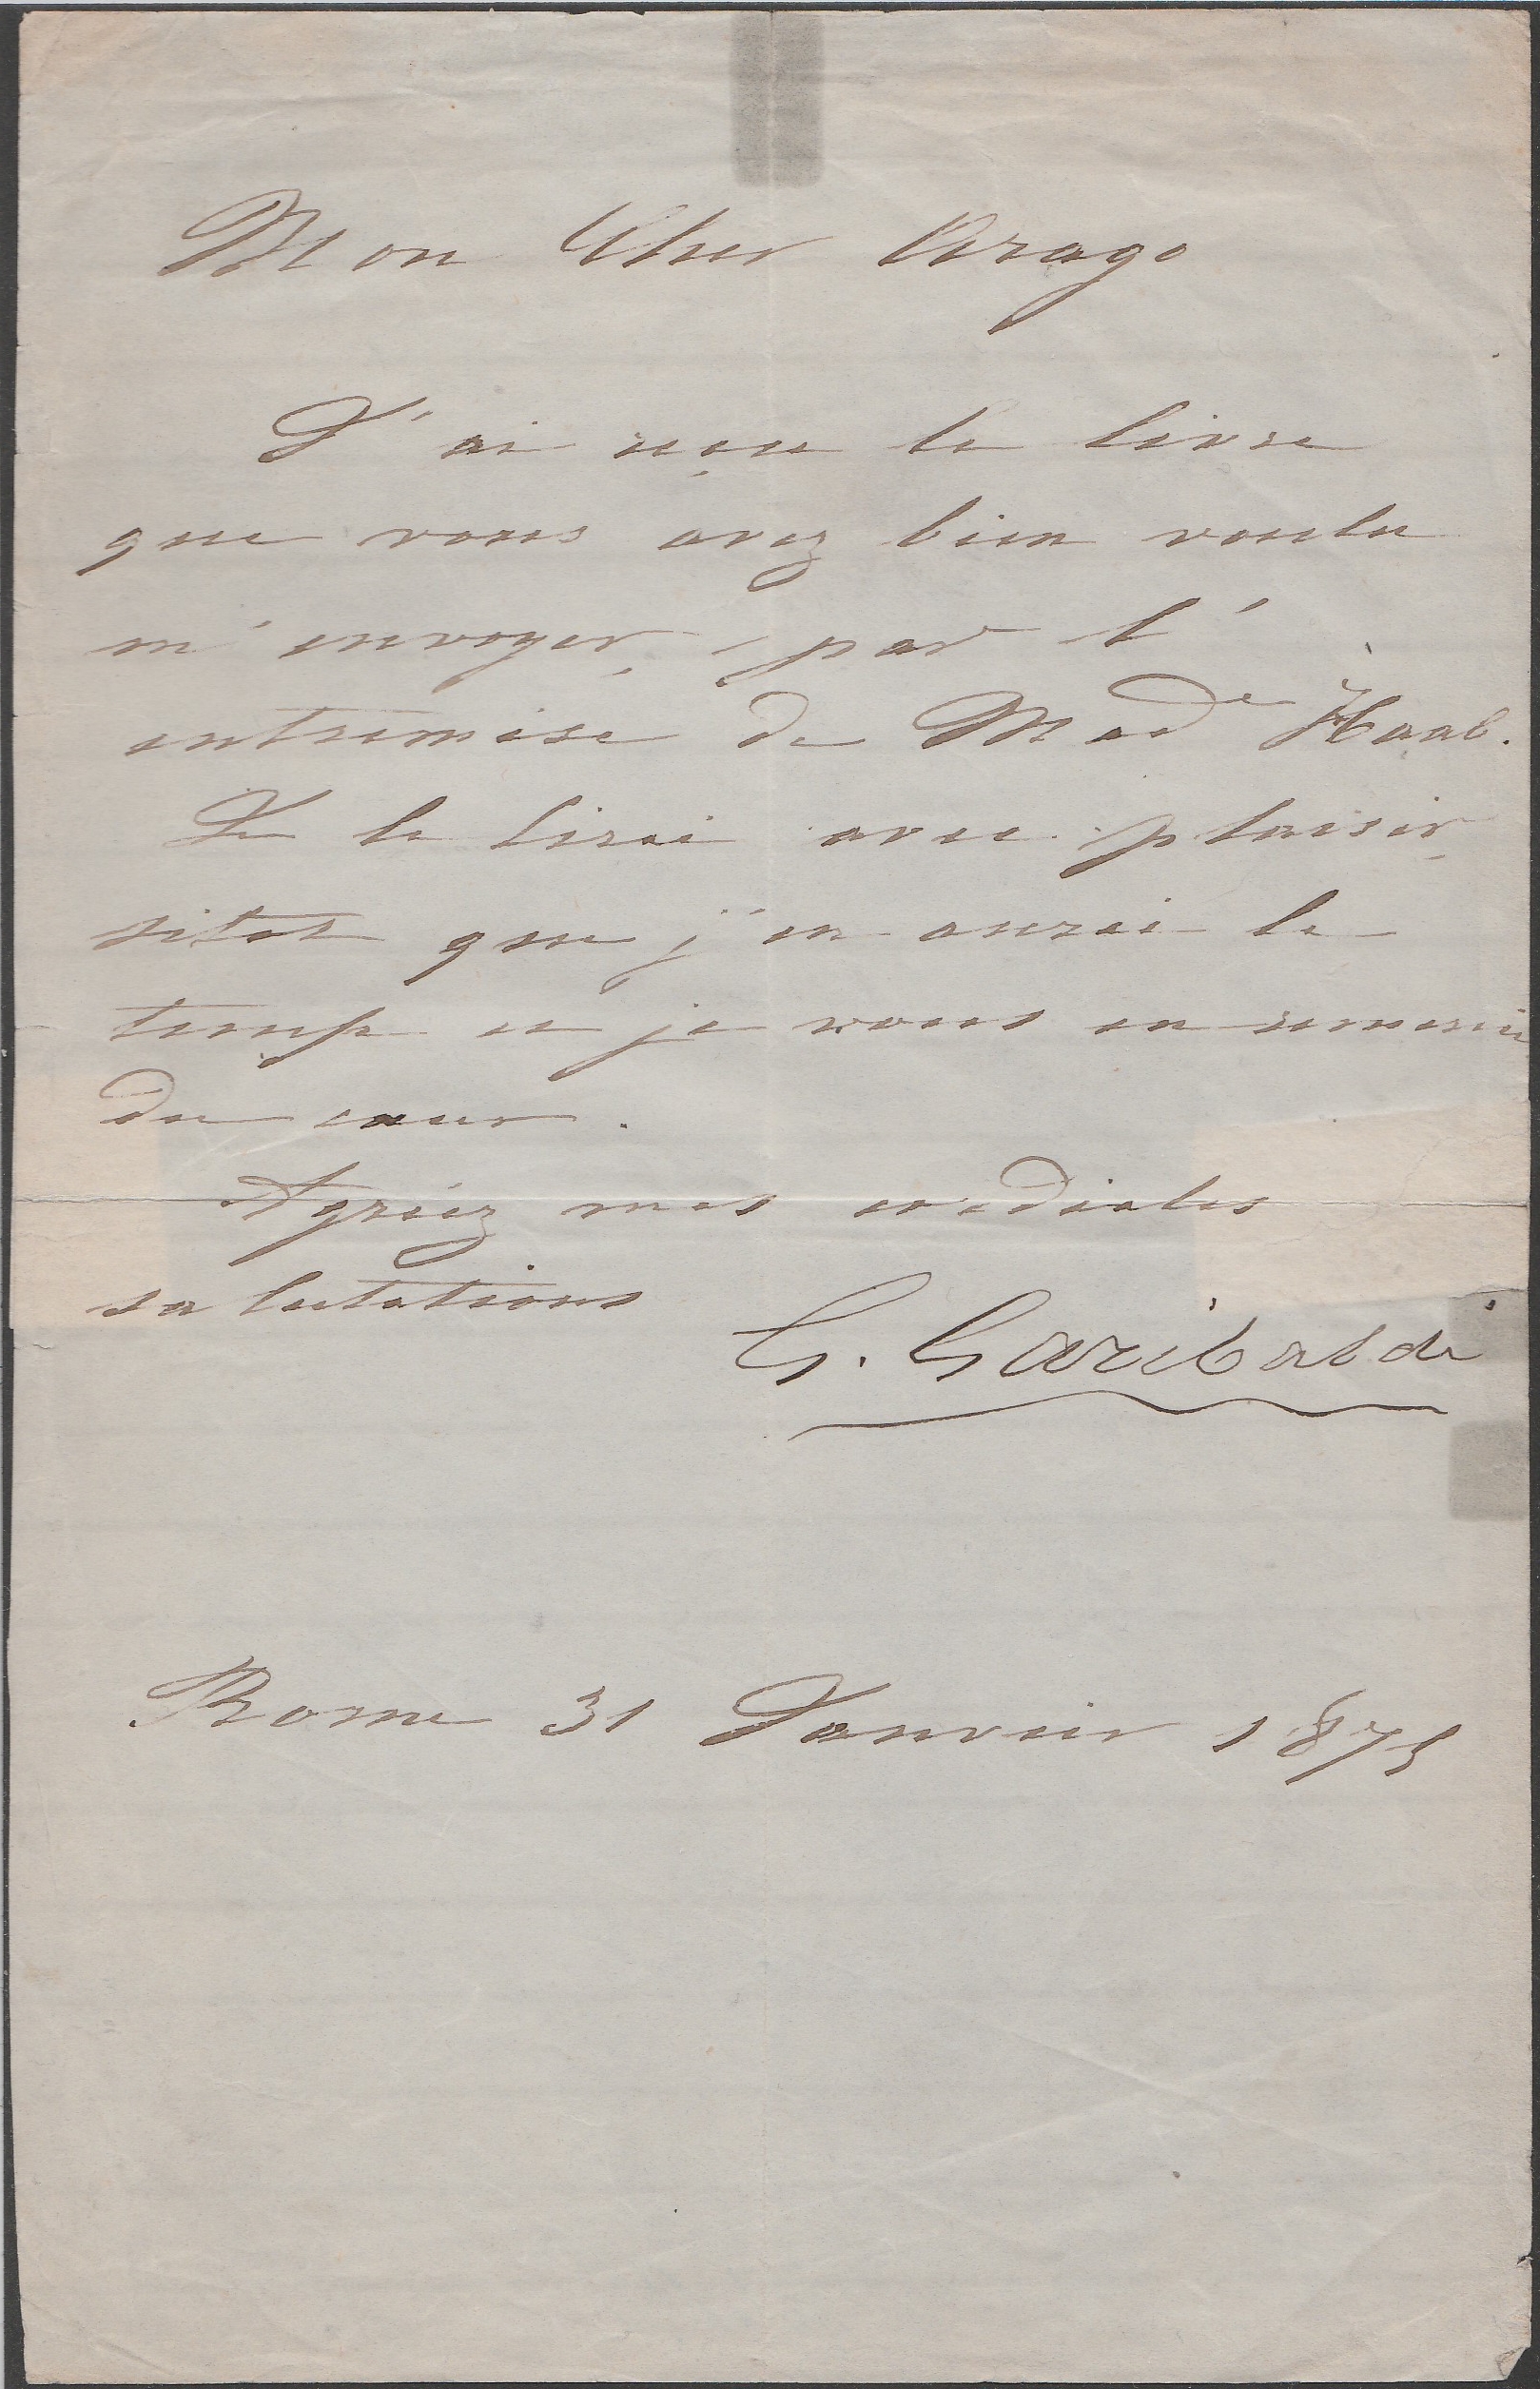 Mon Cher Arago
J'ai reçu le livre
que vous avez bien voulu
m'envoyer, par l'
entremise de Mad.e Haab.
Je le lirai avec plaisir,
sitot que j'en aurai le
temp et je vous en remercie
du cœur.
Agréez mes cordiales
salutations
G. Garibaldi
Rome 31 Janvier 1875